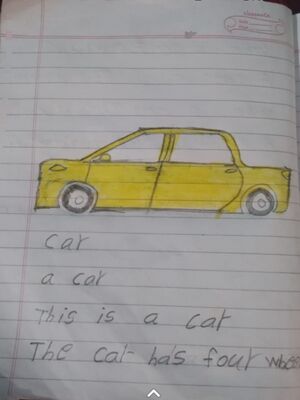 classmate
car
a car
This is a car
The car has four